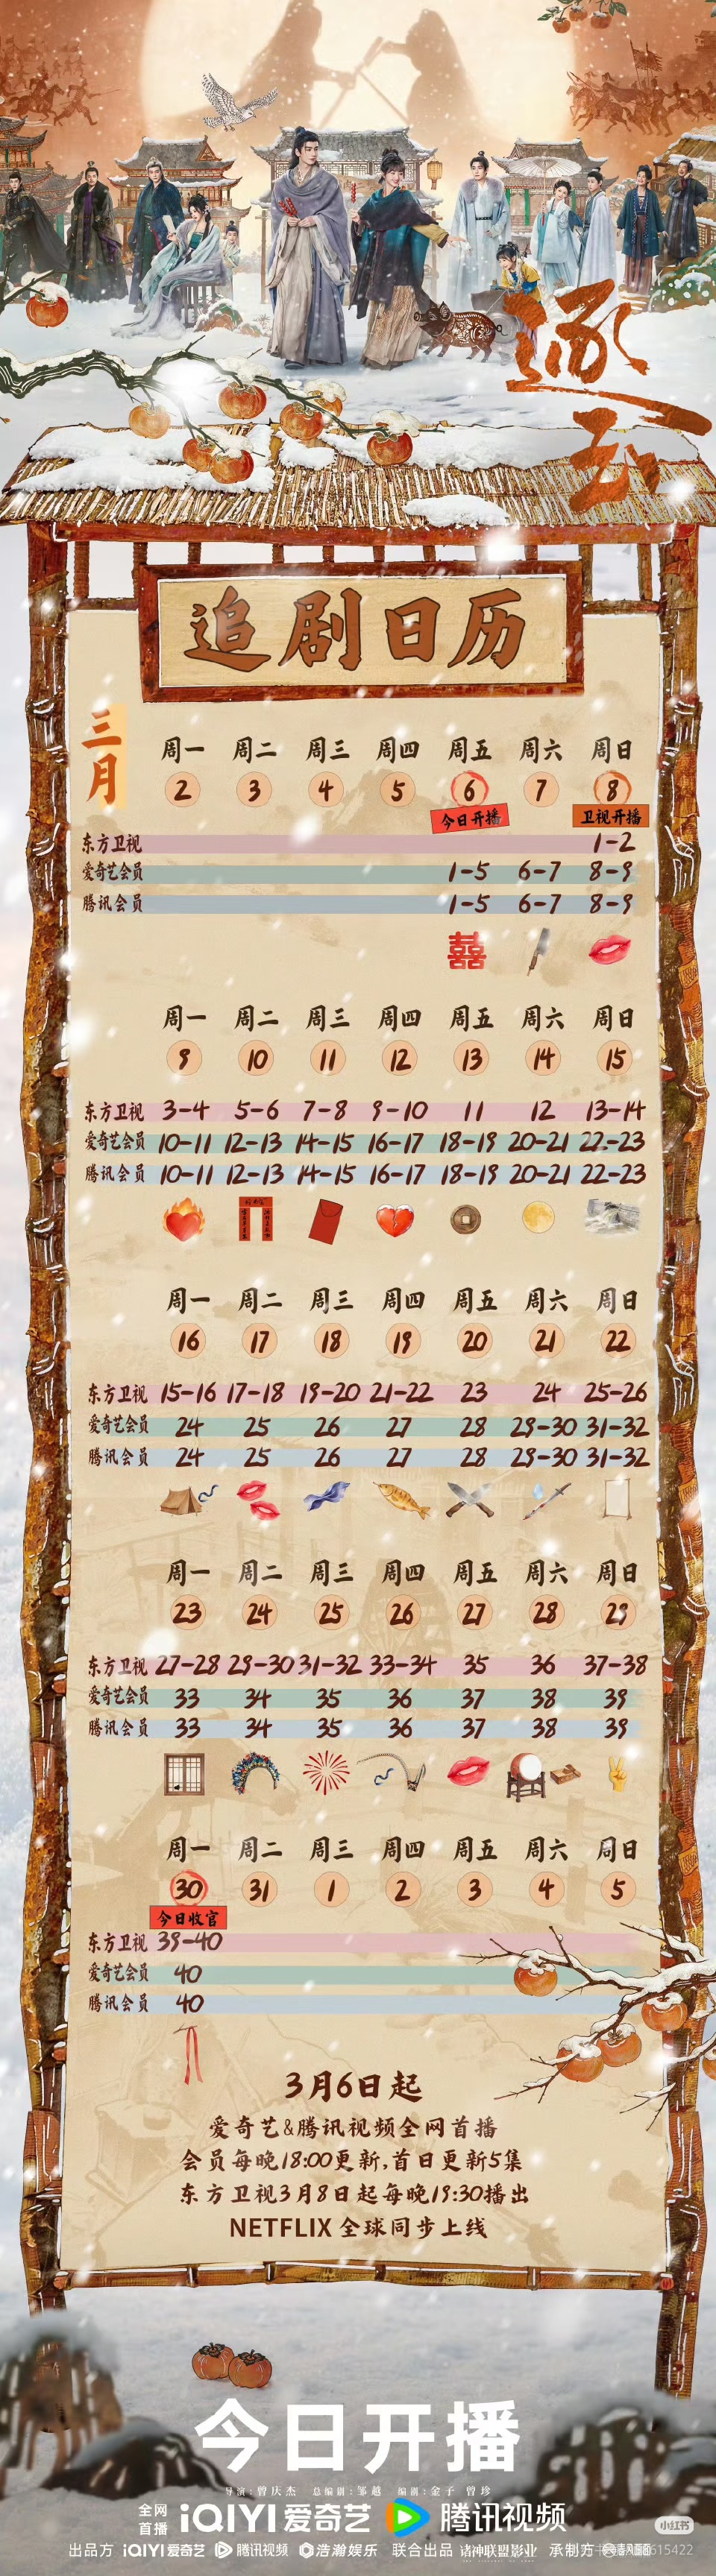 逐玉
追剧日历
三月
周一 周二 周三 周四 周五 周六 周日
2 3 4 5 6 7 8
今日开播 卫视开播
东方卫视 1-2
爱奇艺会员 1-5 6-7 8-9
腾讯会员 1-5 6-7 8-9
囍
周一 周二 周三 周四 周五 周六 周日
9 10 11 12 13 14 15
东方卫视 3-4 5-6 7-8 9-10 11 12 13-14
爱奇艺会员 10-11 12-13 14-15 16-17 18-19 20-21 22-23
腾讯会员 10-11 12-13 14-15 16-17 18-19 20-21 22-23
周一 周二 周三 周四 周五 周六 周日
16 17 18 19 20 21 22
东方卫视 15-16 17-18 19-20 21-22 23 24 25-26
爱奇艺会员 24 25 26 27 28 29-30 31-32
腾讯会员 24 25 26 27 28 29-30 31-32
周一 周二 周三 周四 周五 周六 周日
23 24 25 26 27 28 29
东方卫视 27-28 29-30 31-32 33-34 35 36 37-38
爱奇艺会员 33 34 35 36 37 38 39
腾讯会员 33 34 35 36 37 38 39
周一 周二 周三 周四 周五 周六 周日
30 31 1 2 3 4 5
今日收官
东方卫视 39-40
爱奇艺会员 40
腾讯会员 40
3月6日起
爱奇艺&腾讯视频全网首播
会员每晚18:00更新,首日更新5集
东方卫视3月8日起每晚19:30播出
NETFLIX 全球同步上线
今日开播
导演:曾庆杰 总编剧:邹越 编剧:金子 曾珍
全网首播 iQIYI 爱奇艺 腾讯视频
小红书
出品方 iQIYI 爱奇艺 腾讯视频 浩瀚娱乐 联合出品 诸神联盟影业 承制方